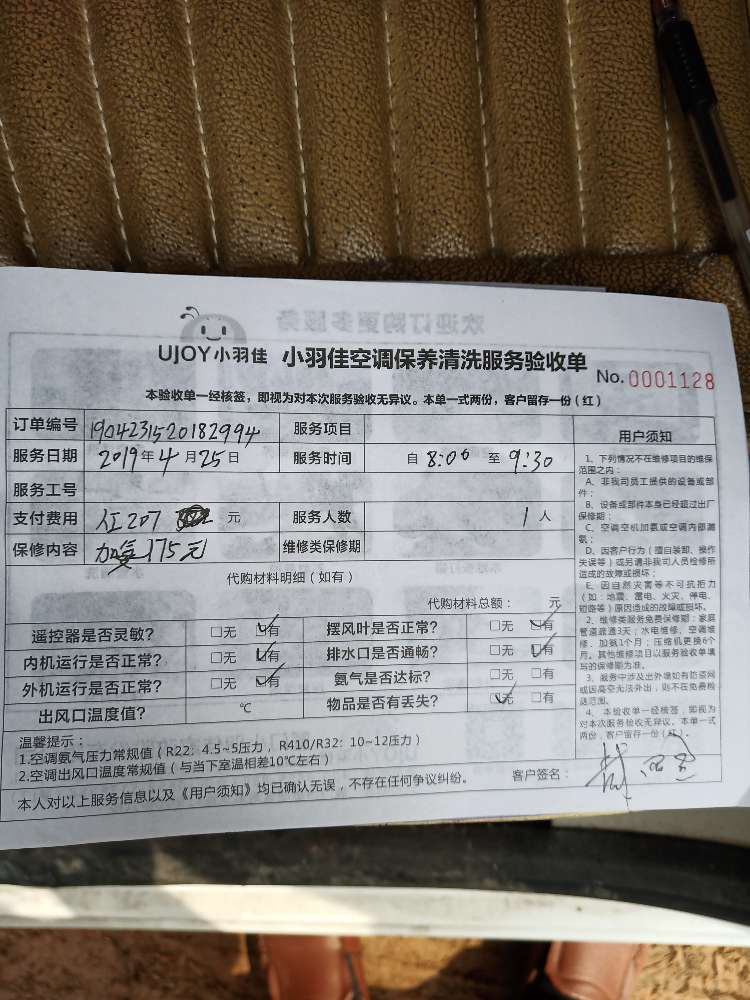 UJOY小羽佳 小羽佳空调保养清洗服务验收单
No. 0001128
本验收单一经核签，即视为对本次服务验收无异议。本单一式两份，客户留存一份（红）
订单编号 1904231520182994 服务项目
服务日期 2019年4月25日 服务时间 自 8:00 至 9:30
服务工号
支付费用 207 元 服务人数 1 人
保修内容 175元 维修类保修期
代购材料明细（如有）
代购材料总额： 元
遥控器是否灵敏? □无 ☑有 摆风叶是否正常? □无 ☑有
内机运行是否正常? □无 ☑有 排水口是否通畅? □无 ☑有
外机运行是否正常? □无 ☑有 氨气是否达标? □无 □有
出风口温度值? ℃ 物品是否有丢失? ☑无 □有
温馨提示：
1.空调氨气压力常规值（R22：4.5~5压力，R410/R32：10~12压力）
2.空调出风口温度常规值（与当下室温相差10℃左右）
客户签名：
本人对以上服务信息以及《用户须知》均已确认无误，不存在任何争议纠纷。
用户须知
1、下列情况不在维修项目的维保
范围之内：
A、非我司员工提供的设备或部
件；
B、设备或部件本身已经超过出厂
保修期；
C、空调空机加氨或空调内部漏
氨；
D、因客户行为（擅自装卸、操作
失误等）或另请非我司人员检修所
造成的故障或损坏；
E、因自然灾害等不可抗拒力
（如：地震、雷电、火灾、停电、
短路等）原因造成的故障或损坏。
2、维修类服务免费保修期：家庭
管道疏通3天；水电维修、空调维
修、加氨1个月；压缩机更换6个
月。其他维修项目以服务验收单填
写的保修期为准。
3、服务中涉及出外墙如有防盗网
或因高空无法外出，则不在免费检
选范围。
4、本验收单一经核签，即视为
对本次服务验收无异议。本单一式
两份，客户留存一份（红）。
欢迎订购更多服务